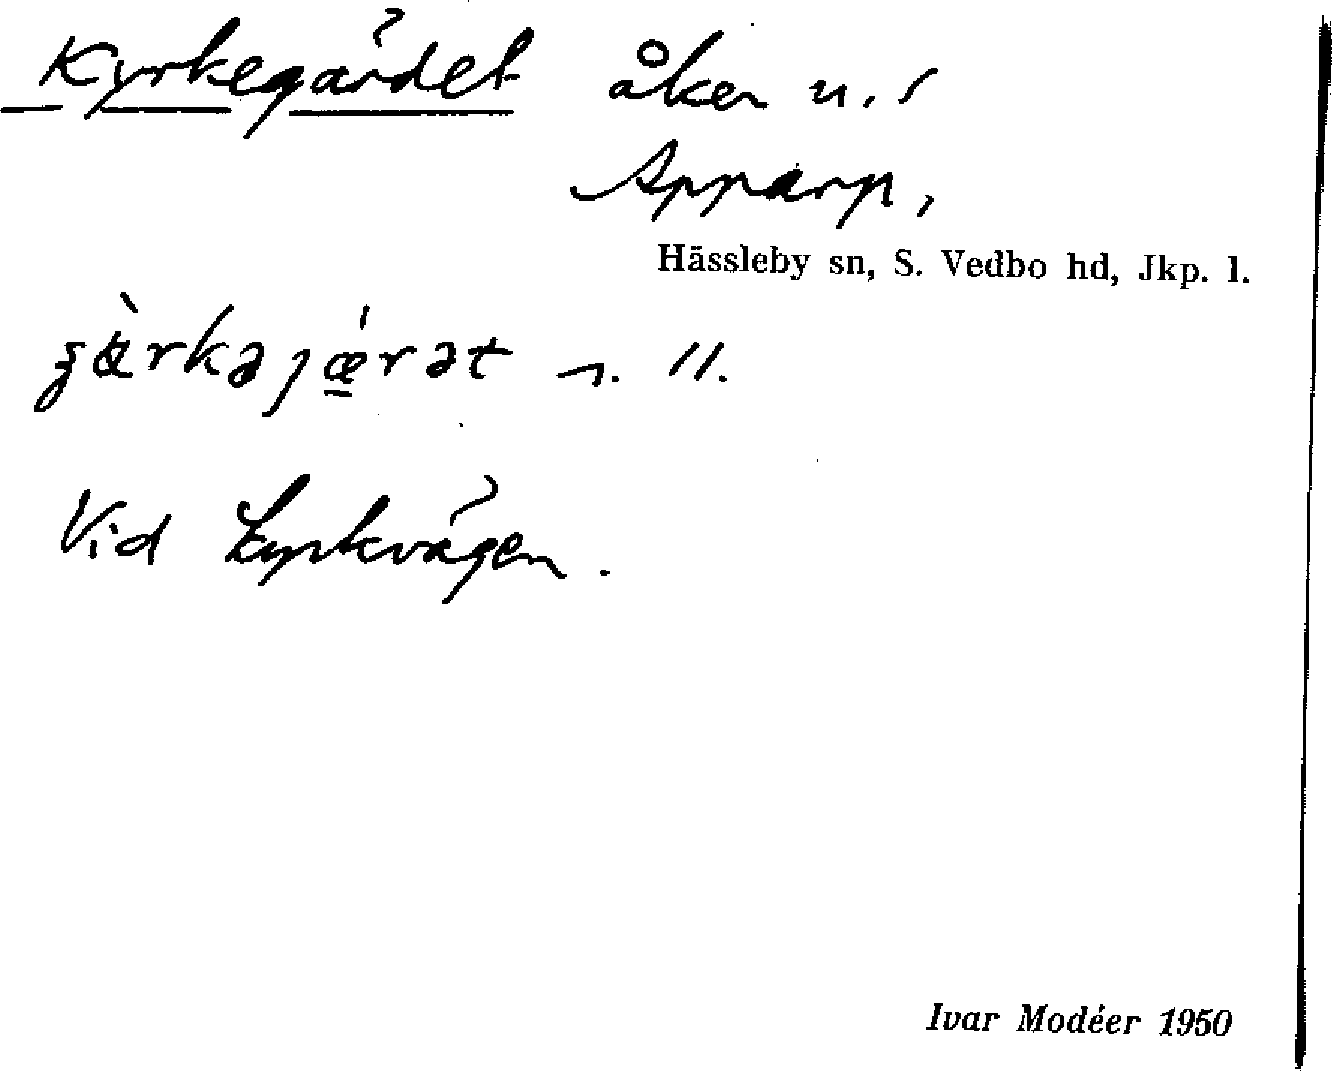 Kyrkegärdet åker u. /
Apparp,
Hässleby sn, S. Vedbo hd, Jkp. l.
n. 11.
Vid kyrkvägen.
Ivar Modéer 1950